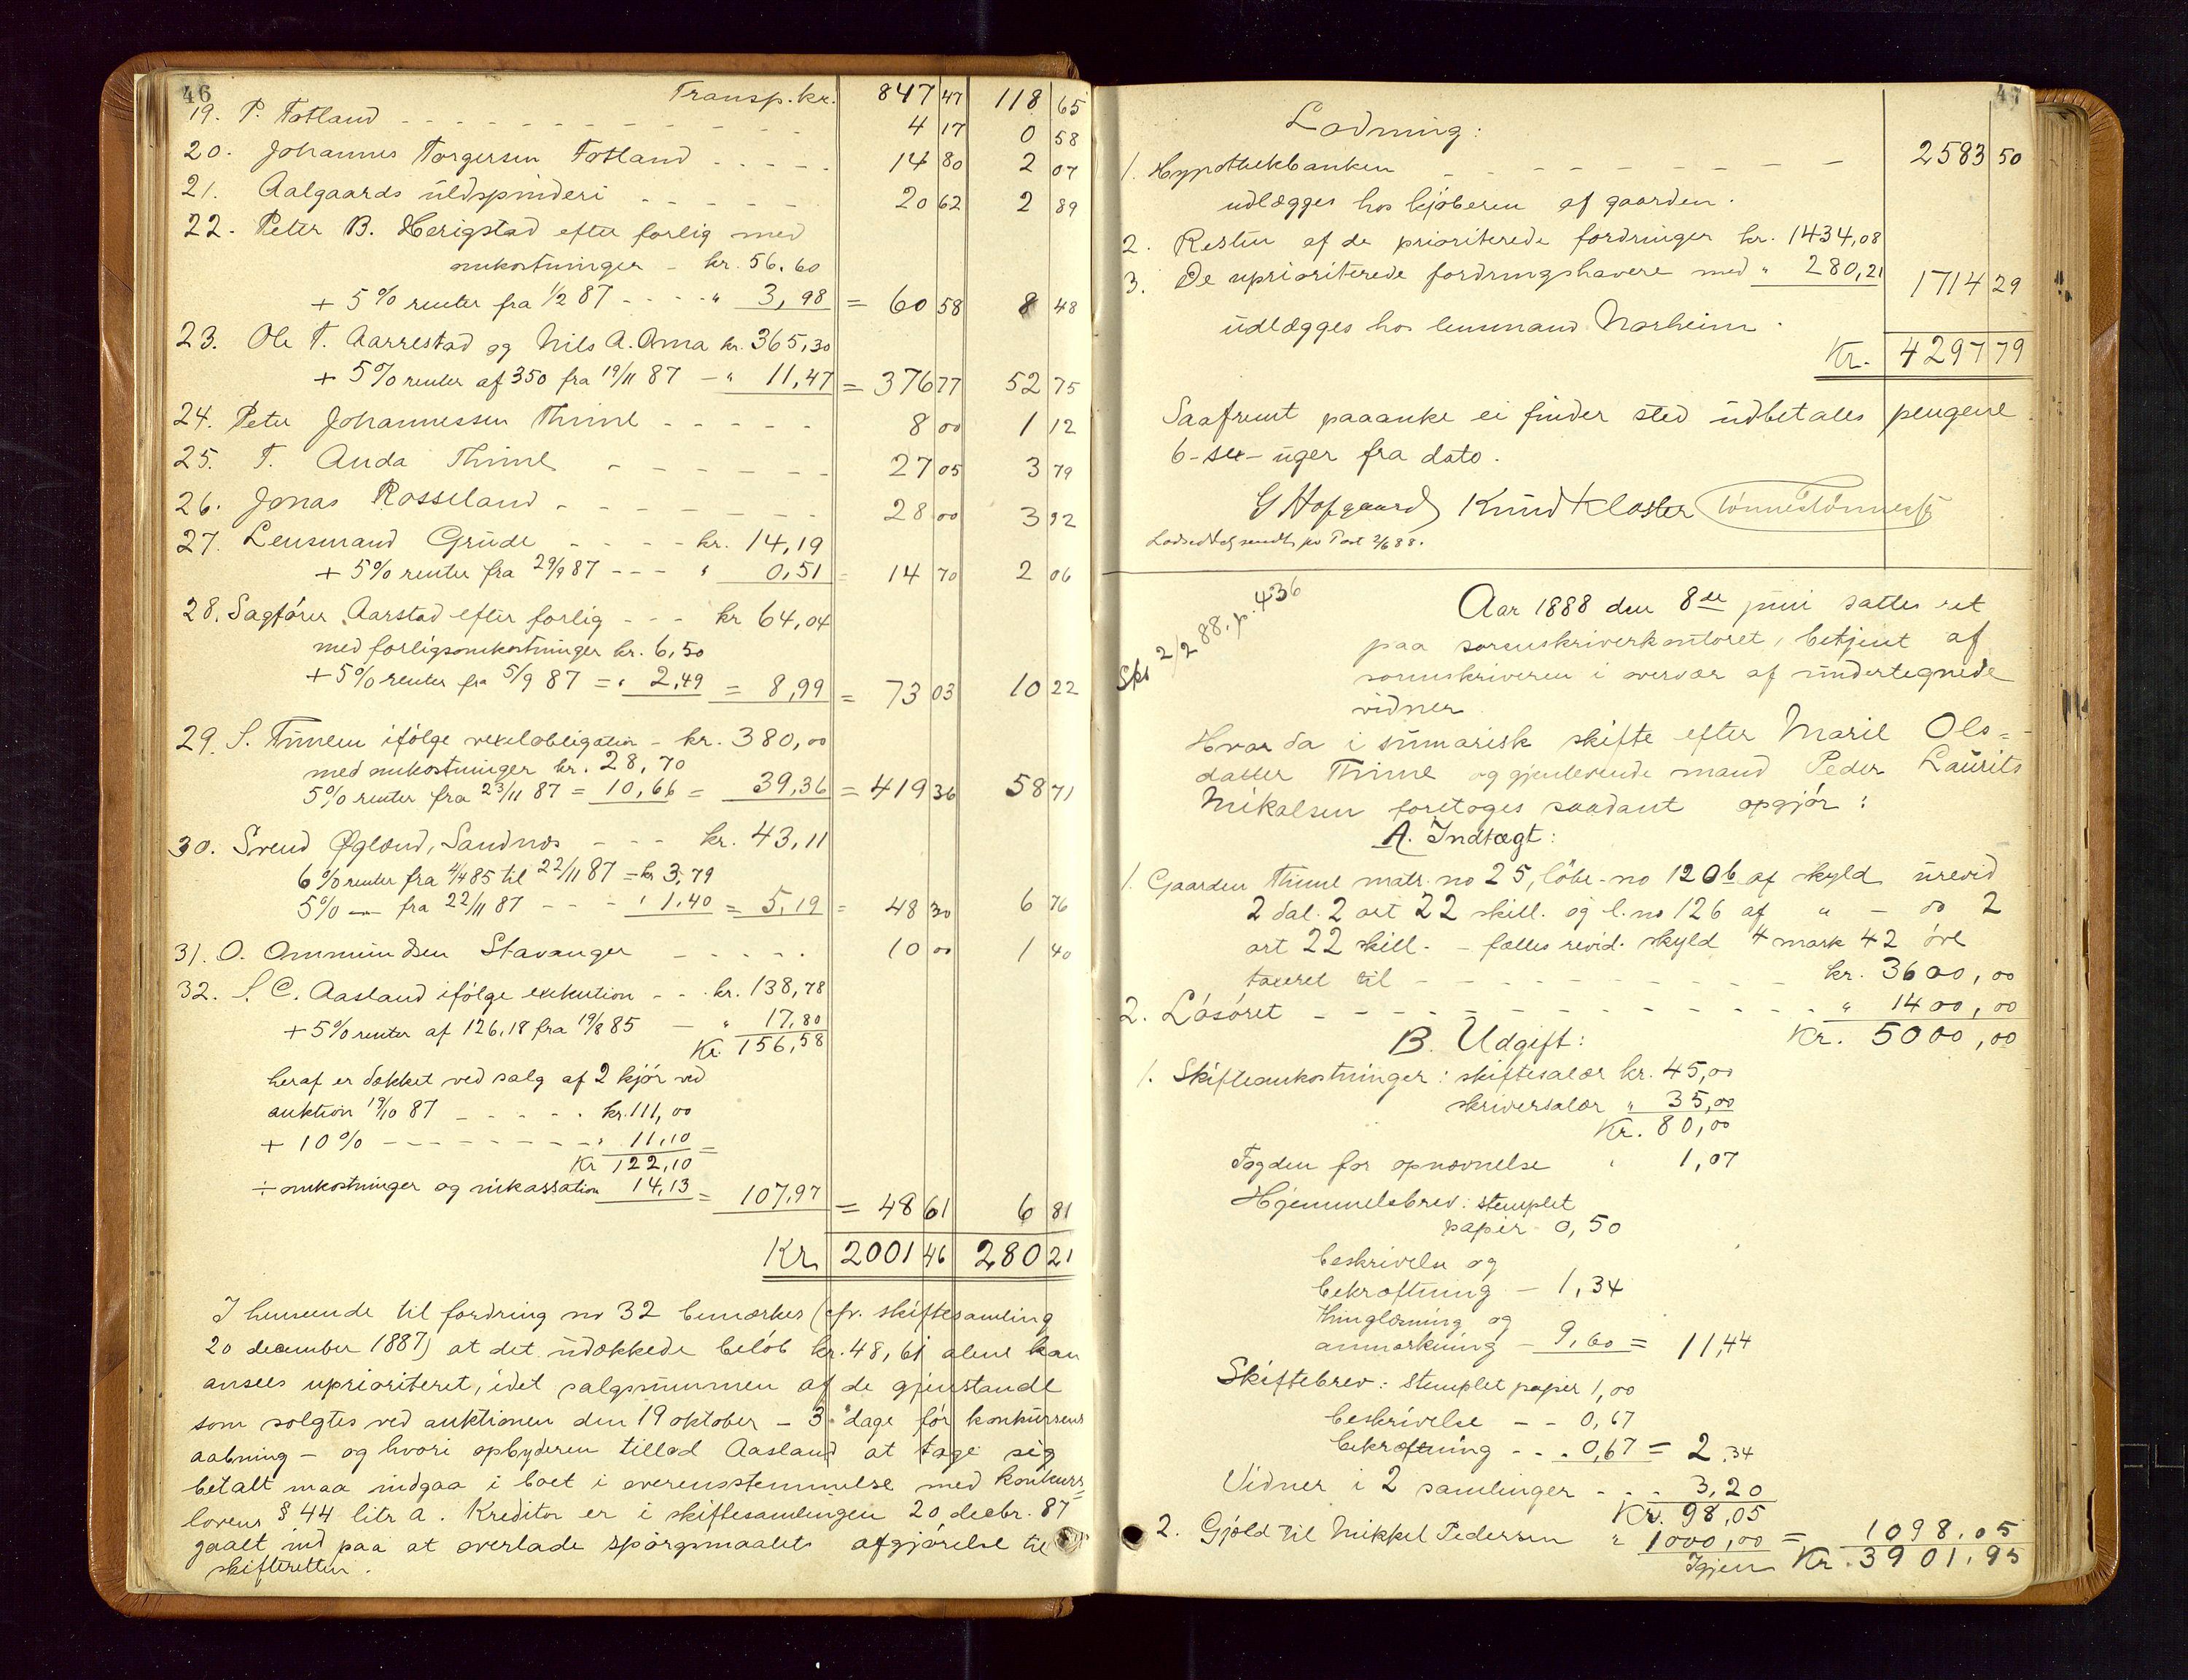 46
Transp. kr. 847 47 118 65
19. P. Fotland - - - 4 17 0 58
20. Johannes Torgersen Fotland - - - 14 80 2 07
21. Aalgaards uldspinderi - - - 20 62 2 89
22. Peter B. Herigstad efter forlig med
omkostninger - kr. 56.60
+ 5% renter fra 1/2 87 - - - " 3,98 = 60 58 8 48
23. Ole T. Aarrestad og Nils A. Ama kr. 365,30
+ 5% renter af 350 fra 19/11 87 - " 11,47 = 376 77 52 75
24. Peter Johannessen Thime - - - 8 00 1 12
25. T. Anda Thime - - - 27 05 3 79
26. Jonas Rosseland - - - 28 00 3 92
27. Lensmand Grude - - - kr. 14,19
+ 5% renter fra 29/9 87 - - - " 0,51 = 14 70 2 06
28. Sagfører Aarstad efter forlig - - - kr 64,04
med forligsomkostninger kr. 6,50
+ 5% renter fra 5/9 87 = " 2,49 = 8,99 = 73 03 10 22
29. S. Thimen ifølge vexelobligation - kr. 380,00
med omkostninger kr. 28,70
5% renter fra 23/11 87 = 10,66 = 39,36 = 419 36 58 71
30. Svend Øglænd, Sandnæs - - - kr. 43,11
6% renter fra 4/4 85 til 22/11 87 = kr 3,79
5% — fra 22/11 87 - - - " 1,40 = 5,19 = 48 30 6 76
31. O. Ommundsen Stavanger - - - 10 00 1 40
32. S. C. Aasland ifølge exekution - - kr. 138,78
+ 5% renter af 126,18 fra 19/8 85 - " 17,80
Kr. 156,58
heraf er dækket ved salg af 2 kjør ved
auktion 19/10 87 - - - kr. 111,00
+ 10% - - - " 11,10 =
Kr 122,10
÷ omkostninger og inkassation 14,13 = 107,97 = 48 61 6 81
Kr. 2001 46 280 21
I henseende til fordring no 32 bemærkes (cfr. skiftesamling
20 december 1887) at det udækkede beløb kr. 48,61 alene kan
ansees uprioriteret, idet salgssummen af de gjenstande
som solgtes ved auktionen den 19 oktober - 3 dage før konkursens
aabning - og hvori opbyderen tillod Aasland at tage sig
betalt maa indgaa i boet i overensstemmelse med konkurs=
lovens § 44 litr a. Kreditor er i skiftesamlingen 20 decbr. 87
gaaet ind paa at overlade spørgsmaalets afgjørelse til
skifteretten.
47
Lodning:
1. Hypothekbanken - - - 2583 50
udlægges hos kjøberen af gaarden.
2. Resten af de prioriterede fordringer kr. 1434,08
3. De uprioriterede fordringshavere med " 280,21 1714 29
udlægges hos lensmand Norheim.
Kr. 4297 79
Saafremt paaanke ei finder sted udbetales pengene
6 - sex - uger fra dato.
G Hofgaard Knud Kloster Tønnes Tønnessen
Lodseddel sendt pr Post 2/6 88.
Skt 2/2 88. p. 436
Aar 1888 den 8de juni sattes ret
paa sorenskriverkontoret, betjent af
sorenskriveren i overvær af undertegnede
vidner
Hvor da i sumarisk skifte efter Marie Ols=
datter Thime og gjenlevende mand Peder Laurits
Mikalsen foretoges saadant opgjør:
A. Indtægt:
1. Gaarden Thime matr. no 25, løbe-no 120b af skyld urevid
2 dal. 2 ort 22 skill. og l. no 126 af " - do 2
ort 22 skill. - fælles revid. skyld 4 mark 42 øre
taxeret til - - - kr. 3600,00
2. Løsøret - - - " 1400,00
B. Udgift: Kr. 5000,00
1. Skifteomkostninger: skiftesalær kr. 45,00
skriversalær " 35,00
Kr. 80,00
Fogden for opnævnelse " 1,07
Hjemmelsbrev: stemplet
papir - 0,50
beskrivelse og
bekræftning - 1,34
thinglæsning og
anmærkning - 9,60 = 11,44
Skiftebrev: stemplet papir 1,00
beskrivelse - - 0,67
bekræftning - - . 0,67 = 2,34
Vidner i 2 samlinger - - - 3,20
Kr. 98,05
2. Gjæld til Mikkel Pedersen " 1000,00 = 1098,05
Igjen Kr. 3901,95